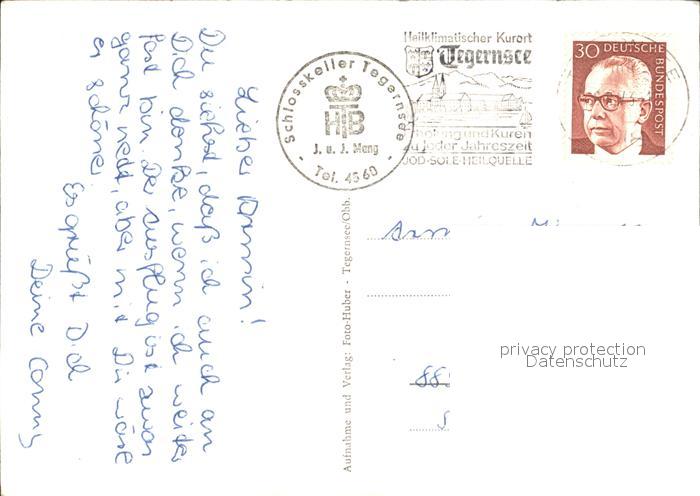 Lieber Armin!
Du siehst, daß ich auch an
Dich denke, wenn ich weiter
fort bin. Der Ausflug ist zwar
ganz nett, aber mit Dir wäre
er schöner.
Es grüßt Dich
Deine Conny
Schlosskeller Tegernsee
HB
J. u. J. Meng
- Tel. 4560 -
Heilklimatischer Kurort
Tegernsee
und Kuren
zu jeder Jahreszeit
JOD-SOLE-HEILQUELLE
30 DEUTSCHE
BUNDESPOST
Aufnahme und Verlag: Foto-Huber - Tegernsee/Obb.
88
privacy protection
Datenschutz